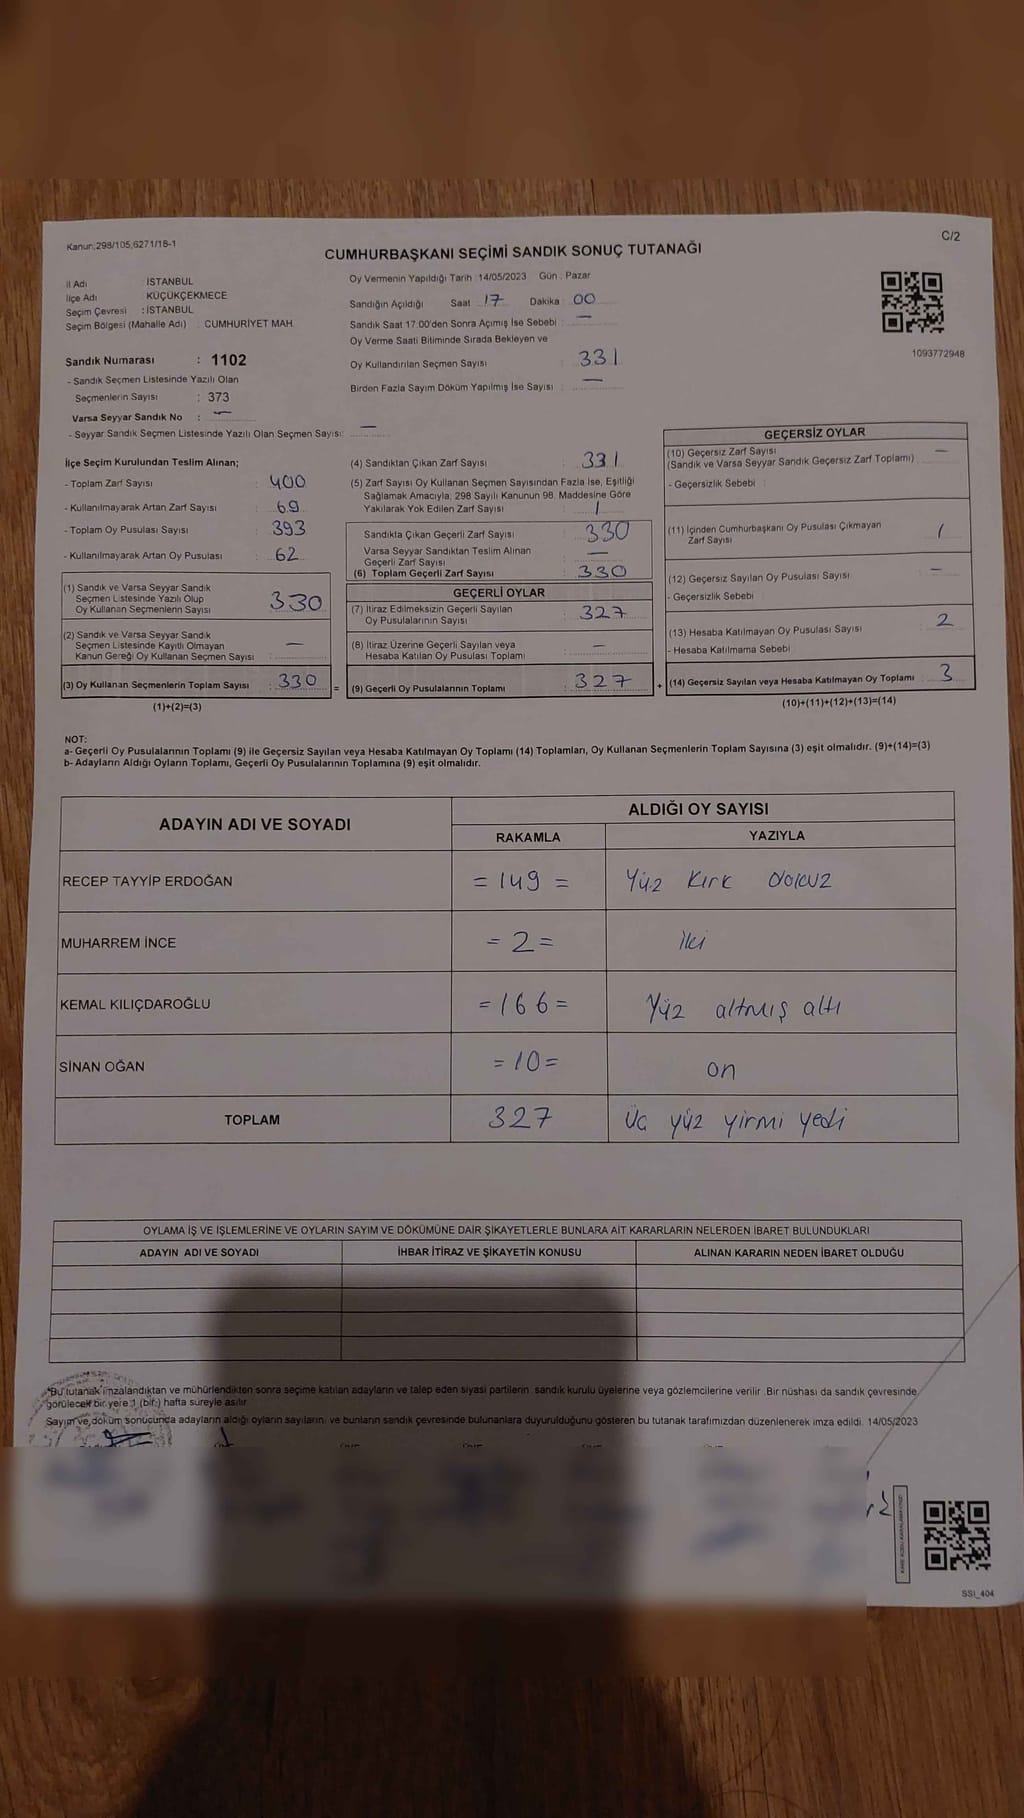 Kanun:298/105,6271/18-1
C/2
CUMHURBAŞKANI SEÇİMİ SANDIK SONUÇ TUTANAĞI
İl Adı : İSTANBUL
İlçe Adı : KÜÇÜKÇEKMECE
Seçim Çevresi : İSTANBUL
Seçim Bölgesi (Mahalle Adı) : CUMHURİYET MAH.
Sandık Numarası : 1102
- Sandık Seçmen Listesinde Yazılı Olan
Seçmenlerin Sayısı : 373
Varsa Seyyar Sandık No : —
- Seyyar Sandık Seçmen Listesinde Yazılı Olan Seçmen Sayısı: —
Oy Vermenin Yapıldığı Tarih : 14/05/2023 Gün : Pazar
Sandığın Açıldığı Saat 17 Dakika : 00
Sandık Saat 17:00'den Sonra Açımış İse Sebebi : —
Oy Verme Saati Bitiminde Sırada Bekleyen ve
Oy Kullandırılan Seçmen Sayısı : 331
Birden Fazla Sayım Döküm Yapılmış İse Sayısı : —
1093772948
İlçe Seçim Kurulundan Teslim Alınan;
- Toplam Zarf Sayısı : 400
- Kullanılmayarak Artan Zarf Sayısı : 69
- Toplam Oy Pusulası Sayısı : 393
- Kullanılmayarak Artan Oy Pusulası : 62
(1) Sandık ve Varsa Seyyar Sandık
Seçmen Listesinde Yazılı Olup
Oy Kullanan Seçmenlerin Sayısı : 330
(2) Sandık ve Varsa Seyyar Sandık
Seçmen Listesinde Kayıtlı Olmayan
Kanun Gereği Oy Kullanan Seçmen Sayısı : —
(3) Oy Kullanan Seçmenlerin Toplam Sayısı : 330
(1)+(2)=(3)
=
(4) Sandıktan Çıkan Zarf Sayısı : 331
(5) Zarf Sayısı Oy Kullanan Seçmen Sayısından Fazla İse, Eşitliği
Sağlamak Amacıyla, 298 Sayılı Kanunun 98. Maddesine Göre
Yakılarak Yok Edilen Zarf Sayısı : 1
Sandıkla Çıkan Geçerli Zarf Sayısı : 330
Varsa Seyyar Sandıktan Teslim Alınan
Geçerli Zarf Sayısı : —
(6) Toplam Geçerli Zarf Sayısı : 330
GEÇERLİ OYLAR
(7) İtiraz Edilmeksizin Geçerli Sayılan
Oy Pusulalarının Sayısı : 327
(8) İtiraz Üzerine Geçerli Sayılan veya
Hesaba Katılan Oy Pusulası Toplamı : —
(9) Geçerli Oy Pusulalarının Toplamı : 327
+
GEÇERSİZ OYLAR
(10) Geçersiz Zarf Sayısı : —
(Sandık ve Varsa Seyyar Sandık Geçersiz Zarf Toplamı)
- Geçersizlik Sebebi :
(11) İçinden Cumhurbaşkanı Oy Pusulası Çıkmayan
Zarf Sayısı : 1
(12) Geçersiz Sayılan Oy Pusulası Sayısı : —
- Geçersizlik Sebebi
(13) Hesaba Katılmayan Oy Pusulası Sayısı : 2
- Hesaba Katılmama Sebebi
(14) Geçersiz Sayılan veya Hesaba Katılmayan Oy Toplamı : 3
(10)+(11)+(12)+(13)=(14)
NOT:
a- Geçerli Oy Pusulalarının Toplamı (9) ile Geçersiz Sayılan veya Hesaba Katılmayan Oy Toplamı (14) Toplamları, Oy Kullanan Seçmenlerin Toplam Sayısına (3) eşit olmalıdır. (9)+(14)=(3)
b- Adayların Aldığı Oyların Toplamı, Geçerli Oy Pusulalarının Toplamına (9) eşit olmalıdır.
ADAYIN ADI VE SOYADI
ALDIĞI OY SAYISI
RAKAMLA YAZIYLA
RECEP TAYYİP ERDOĞAN = 149 = Yüz Kırk Dokuz
MUHARREM İNCE = 2 = iki
KEMAL KILIÇDAROĞLU = 166 = Yüz altmış altı
SİNAN OĞAN = 10 = on
TOPLAM 327 üç yüz yirmi yedi
OYLAMA İŞ VE İŞLEMLERİNE VE OYLARIN SAYIM VE DÖKÜMÜNE DAİR ŞİKAYETLERLE BUNLARA AİT KARARLARIN NELERDEN İBARET BULUNDUKLARI
ADAYIN ADI VE SOYADI İHBAR İTİRAZ VE ŞİKAYETİN KONUSU ALINAN KARARIN NEDEN İBARET OLDUĞU
*Bu tutanak imzalandıktan ve mühürlendikten sonra seçime katılan adayların ve talep eden siyasi partilerin sandık kurulu üyelerine veya gözlemcilerine verilir. Bir nüshası da sandık çevresinde
görülecek bir yere 1 (bir) hafta süreyle asılır.
Sayım ve döküm sonucunda adayların aldığı oyların sayılarını ve bunların sandık çevresinde bulunanlara duyurulduğunu gösteren bu tutanak tarafımızdan düzenlenerek imza edildi. 14/05/2023
SSİ_404